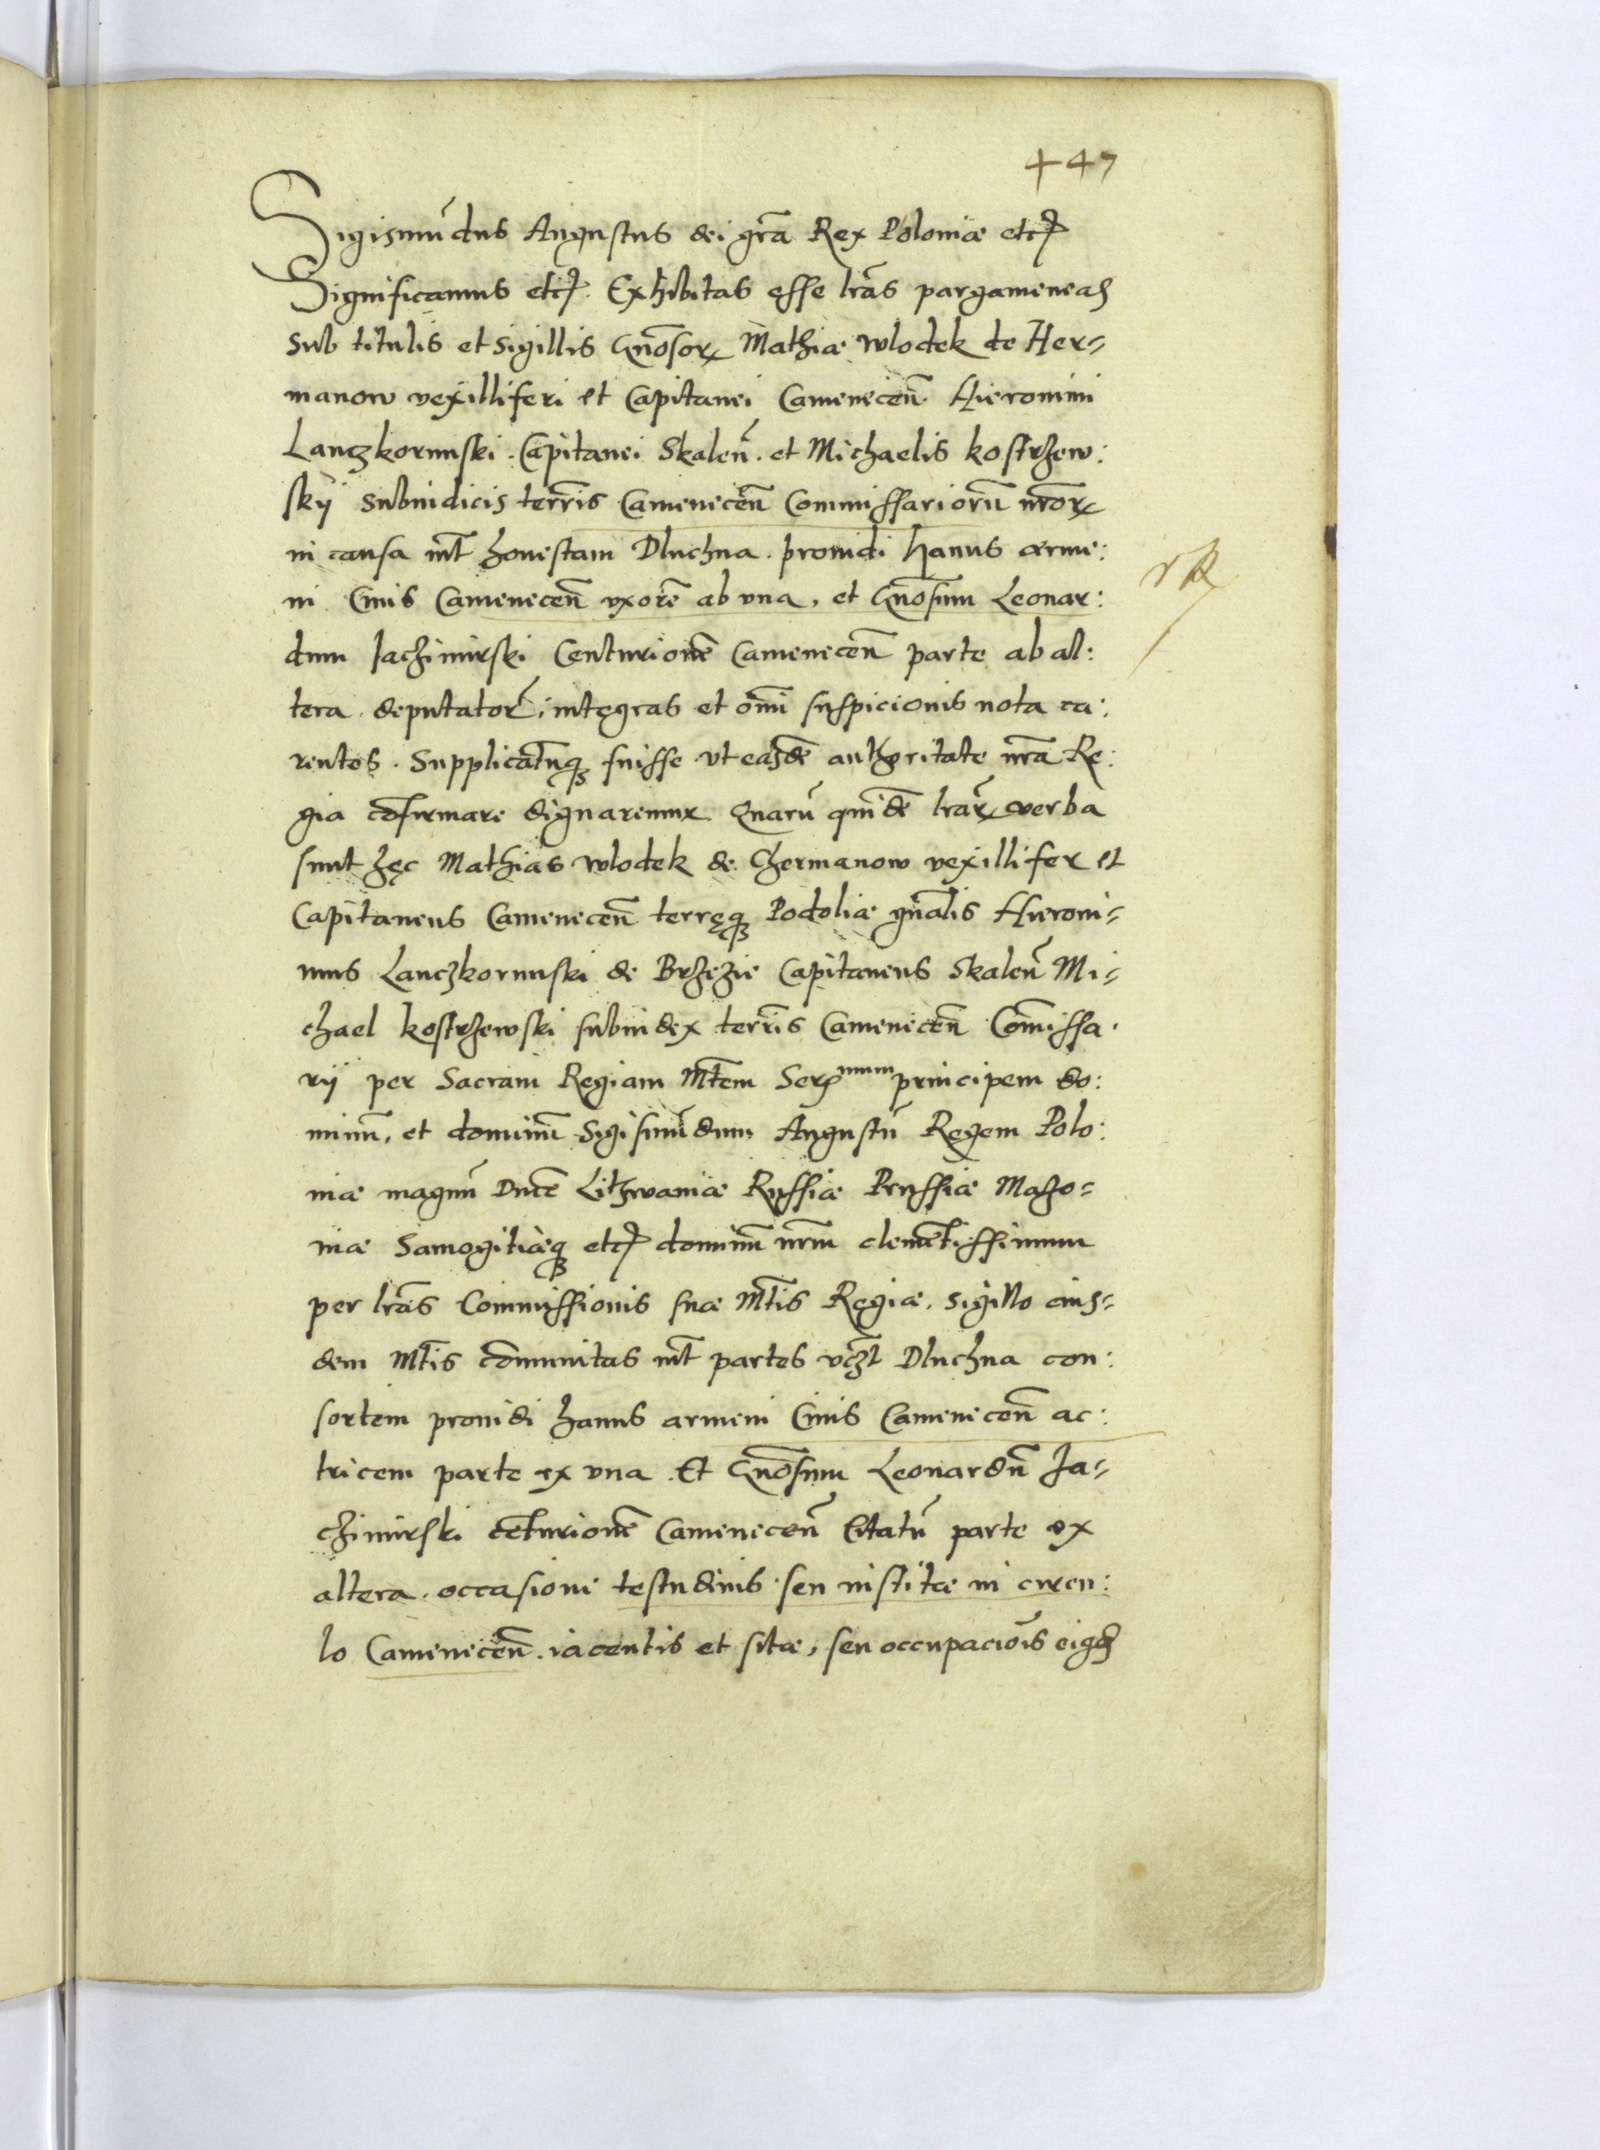 +47
Sigismūdus Augustus dei grã Rex Poloniæ etc
Significamus etc. Exhibitas esse lrãs pargameneas
sub titulis et sigillis Gñosorꝝ Mathiæ Wlodek de Her=
manow vexilliferi et Capitanei Cameneceñ. Hieronimi
Lanczkorunski. Capitanei Skaleñ. et Michaelis kostrzew:
skÿ subiudicis terris̃ Cameneceñ Commissariorũ nr̃orꝝ
in causa int̃ honestam Dluchna. prouidi hanus arme:
ni Ciuis Cameneceñ vxorẽ ab vna, et Gñosum Leonar:
dum Jachimirski Centurionẽ Cameneceñ parte ab al:
tera deputator̃, integras et om̃i suspicionis nota ca:
rentes. Supplicatũq fuisse vt easdẽ authoritate nr̃a Re:
gia cõfirmare dignaremur Quarũ quidẽ lrãrꝝ verba
sunt hęc Mathias Wlodek de Chermanow vexillifer et
Capitaneus Cameneceñ terręq Podoliæ gñalis Hieroni=
mus Lanczkorunski de Brzezie Capitaneus Skaleñ Mi=
chael kostrzewski subiudex terris̃ Cameneceñ Com̃issa.
rÿ per Sacram Regiam Mt̃em Ser mum principem do:
minũ, et dominũ Sigismũdum Augustũ Regem Polo:
niæ magnũ Ducẽ Lithwaniæ Russiæ Prussiæ Mazo=
uiæ Samogitiæq etc dominũ nr̃m clemẽtissimum
per lrãs Commissionis suæ Mt̃is Regiæ, sigillo eius=
dem Mt̃is cõmunitas int̃ partes vcz̃t Dluchna con:
sortem prouidi hanus armeni Ciuis Cameneceñ ac:
tricem parte ex vna. Et Gñosum Leonardũ Ja=
chimirski cẽturionẽ Cameneceñ Citatũ parte ex
altera. occasione testudinis seu institæ in circu:
lo Cameneceñ. iacentis et sitæ, seu occupaciõis